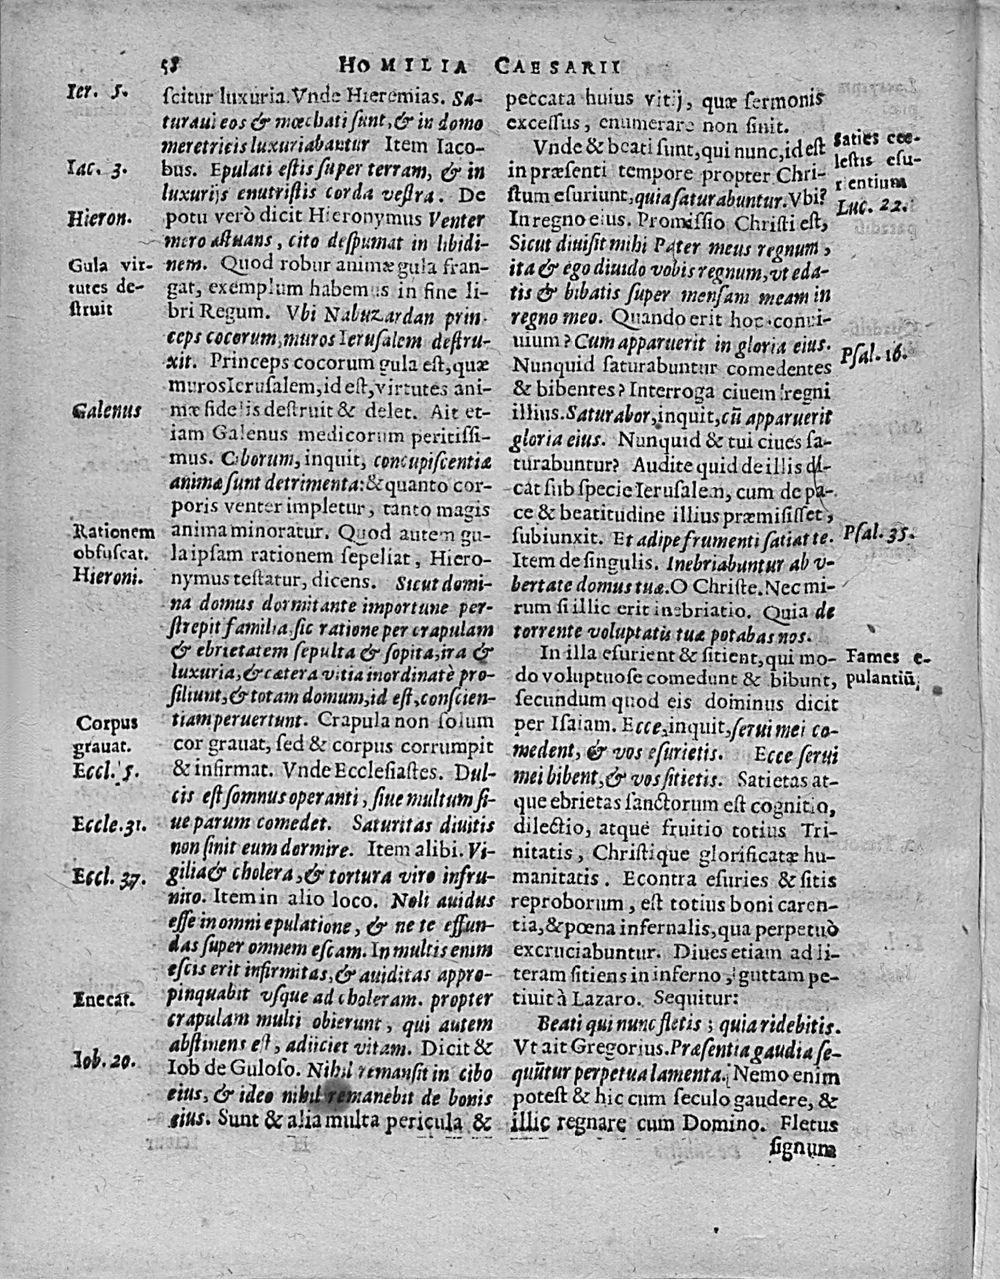 58 HOMILIA CAESARII
Ier. 5.
Iac. 3.
Hieron.
Gula vir-
tutes de-
struit
Galenus
Rationem
obfuscat.
Hieroni.
Corpus
grauat.
Eccl. 5.
Eccle. 31.
Eccl. 37.
Enecat.
Iob. 20.
scitur luxuria. Vnde Hieremias. Sa-
turaui eos & mœchati sunt, & in domo
meretricis luxuriabantur Item Iaco-
bus. Epulati estis super terram, & in
luxurijs enutristis corda vestra. De
potu verò dicit Hieronymus Venter
mero æstuans, cito despumat in libidi-
nem. Quod robur animæ gula fran-
gat, exemplum habemus in fine li-
bri Regum. Vbi Nabuzardan prin-
ceps cocorum, muros Ierusalem destru-
xit. Princeps cocorum gula est, quæ
muros Ierusalem, id est, virtutes ani-
mæ fidelis destruit & delet. Ait et-
iam Galenus medicorum peritissi-
mus. Ciborum, inquit, concupiscentiæ
animæ sunt detrimenta: & quanto cor-
poris venter impletur, tanto magis
anima minoratur. Quod autem gu-
la ipsam rationem sepeliat, Hiero-
nymus testatur, dicens. Sicut domi-
na domus dormitante importune per-
strepit familia, sic ratione per crapulam
& ebrietatem sepulta & sopita, ira &
luxuria, & cætera vitia inordinatè pro-
siliunt, & totam domum, id est, conscien-
tiam peruertunt. Crapula non solum
cor grauat, sed & corpus corrumpit
& infirmat. Vnde Ecclesiastes. Dul-
cis est somnus operanti, siue multum si-
ue parum comedet. Saturitas diuitis
non sinit eum dormire. Item alibi. Vi-
gilia & cholera, & tortura viro infru-
nito. Item in alio loco. Noli auidus
esse in omni epulatione, & ne te effun-
das super omnem escam. In multis enim
escis erit infirmitas, & auiditas appro-
pinquabit vsque ad choleram. propter
crapulam multi obierunt, qui autem
abstinens est, adijciet vitam. Dicit &
Iob de Guloso. Nihil remansit in cibo
eius, & ideo nihil remanebit de bonis
eius. Sunt & alia multa pericula &
peccata huius vitij, quæ sermonis
excessus, enumerare non sinit.
Vnde & beati sunt, qui nunc, id est
in præsenti tempore propter Chri-
stum esuriunt, quia saturabuntur. Vbi?
In regno eius. Promissio Christi est,
Sicut diuisit mihi Pater meus regnum,
ita & ego diuido vobis regnum, vt eda-
tis & bibatis super mensam meam in
regno meo. Quando erit hoc conui-
uium? Cum apparuerit in gloria eius.
Nunquid saturabuntur comedentes
& bibentes? Interroga ciuem regni
illius. Saturabor, inquit, cũ apparuerit
gloria eius. Nunquid & tui ciues sa-
turabuntur? Audite quid de illis di-
cat sub specie Ierusalem, cum de pa-
ce & beatitudine illius præmisisset,
subiunxit. Et adipe frumenti satiat te.
Item de singulis. Inebriabuntur ab v-
bertate domus tuæ. O Christe. Nec mi-
rum si illic erit inebriatio. Quia de
torrente voluptatis tuæ potabas nos.
In illa esurient & sitient, qui mo-
do voluptuose comedunt & bibunt,
secundum quod eis dominus dicit
per Isaiam. Ecce, inquit, serui mei co-
medent, & vos esurietis. Ecce serui
mei bibent, & vos sitietis. Satietas at-
que ebrietas sanctorum est cognitio,
dilectio, atque fruitio totius Tri-
nitatis, Christique glorificatæ hu-
manitatis. Econtra esuries & sitis
reproborum, est totius boni caren-
tia, & pœna infernalis, qua perpetuò
excruciabuntur. Diues etiam ad li-
teram sitiens in inferno, guttam pe-
tiuit à Lazaro. Sequitur:
Beati qui nunc fletis; quia ridebitis.
Vt ait Gregorius. Præsentia gaudia se-
quũtur perpetua lamenta. Nemo enim
potest & hic cum seculo gaudere, &
illic regnare cum Domino. Fletus
signum
Saties cœ-
lestis esu-
rientium
Luc. 22.
Psal. 16.
Psal. 35.
Fames e-
pulantiũ